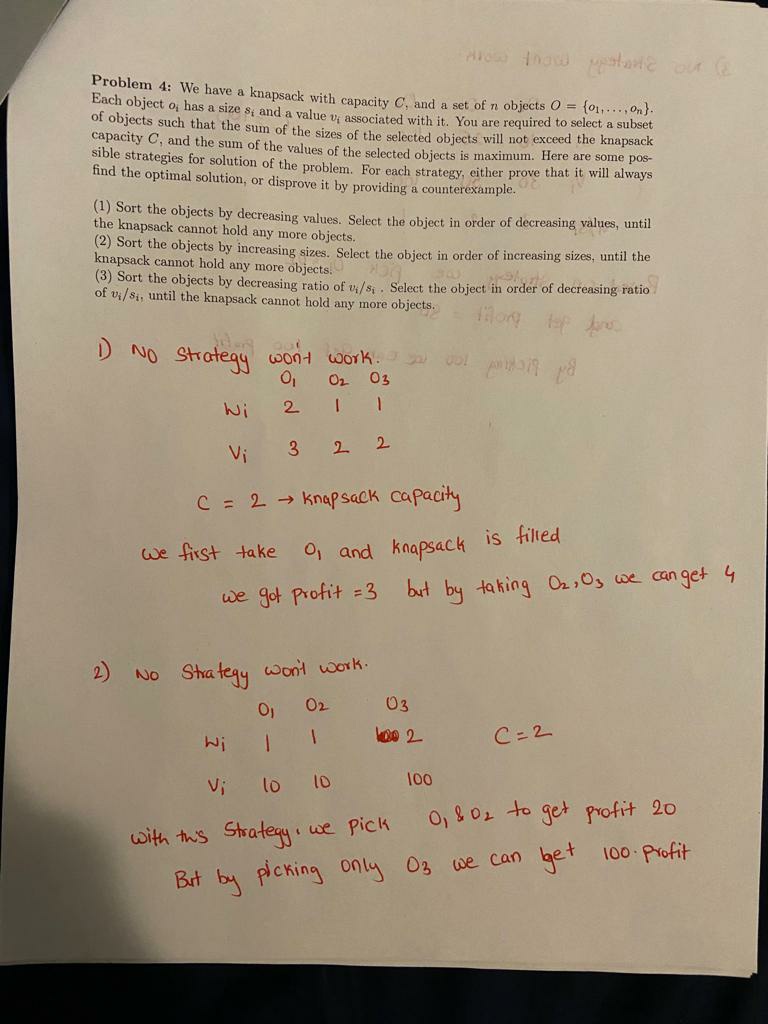 Problem 4: We have a knapsack with capacity C, and a set of n objects O = {o1, . . . , on}.
Each object oi has a size si and a value vi associated with it. You are required to select a subset
of objects such that the sum of the sizes of the selected objects will not exceed the knapsack
capacity C, and the sum of the values of the selected objects is maximum. Here are some pos-
sible strategies for solution of the problem. For each strategy, either prove that it will always
find the optimal solution, or disprove it by providing a counterexample.
(1) Sort the objects by decreasing values. Select the object in order of decreasing values, until
the knapsack cannot hold any more objects.
(2) Sort the objects by increasing sizes. Select the object in order of increasing sizes, until the
knapsack cannot hold any more objects.
(3) Sort the objects by decreasing ratio of vi/si . Select the object in order of decreasing ratio
of vi/si, until the knapsack cannot hold any more objects.
1) No Strategy won't work.
O1 O2 O3
Wi 2 1 1
Vi 3 2 2
C = 2 → knapsack capacity
we first take O1 and knapsack is filled
we got profit = 3 but by taking O2, O3 we can get 4
2) No Strategy won't work.
O1 O2 O3
Wi 1 1 2 C = 2
Vi 10 10 100
with this Strategy, we pick O1 & O2 to get profit 20
But by picking only O3 we can get 100 profit